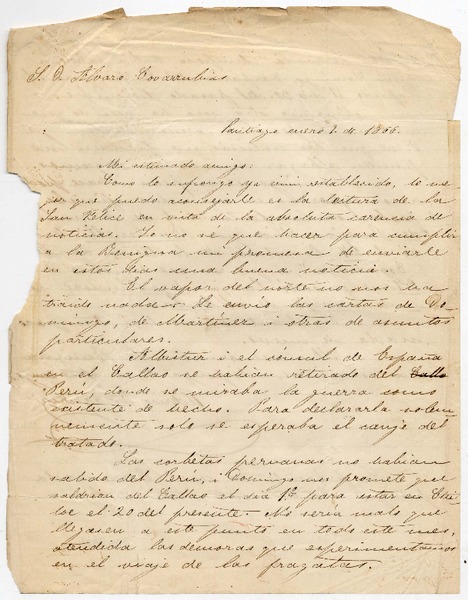 S. D. Alvaro Covarrubias
Santiago enero 2 de 1866.
Mi estimado amigo:
Como lo supongo ya mui establecido, lo me-
jor que puedo aconsejarle es la lectura de la
San Felice en vista de la absoluta carencia de
noticias. Yo no sé que hacer para cumplir
a la Benigna mi promesa de enviarle
en estos dias una buena noticia.
El vapor del norte no nos ha
traido nada. Le envio las cartas de Do-
mingo, de Martinez i otras de asuntos
particulares.
El Ministro i el cónsul de España
en el Callao se habian retirado del Callao
Perú, donde se miraba la guerra como
existente de hecho. Para declararla solem-
nemente solo se esperaba el canje del
tratado.
Las corbetas peruanas no habian
salido del Perú, i Domingo nos promete que
saldrian del Callao el dia 1º para estar en Chi-
loe el 20 del presente. No seria malo que
llegasen a este punto en todo este mes,
atendida las demoras que esperimentamos
en el viaje de las fragatas.